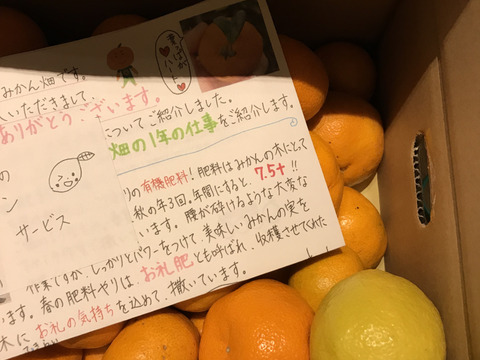 葉っぱがハート
みかん畑です。
いただきまして、
ありがとうございます。
についてご紹介しました。
畑の1年の仕事をご紹介します。
りの有機肥料!肥料はみかんの木にとって
秋の年3回。年間にすると、7.5t!!
います。腰が砕けるような大変な
作業ですが、しっかりとパワーをつけて、美味しいみかんの実を
ます。春の肥料やりは、お礼肥とも呼ばれ、収穫させてくれた
木にお礼の気持ちを込めて、撒いています。
の
ン
サービス